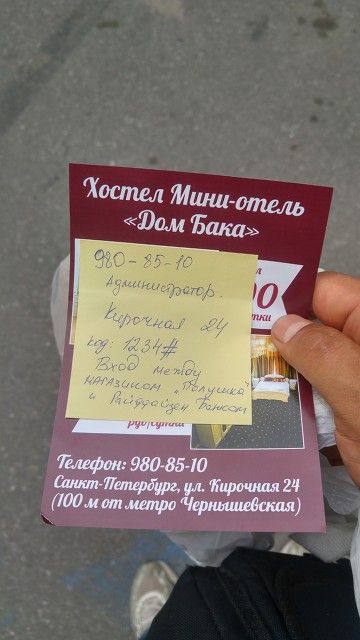 Хостел Мини-отель
«Дом Бака»
980-85-10
Администратор.
Кирочная 24
код: 1234#
Вход между
магазином „Полушка"
и Райффайзен Банком
00
тки
руб/сутки
Телефон: 980-85-10
Санкт-Петербург, ул. Кирочная 24
(100 м от метро Чернышевская)